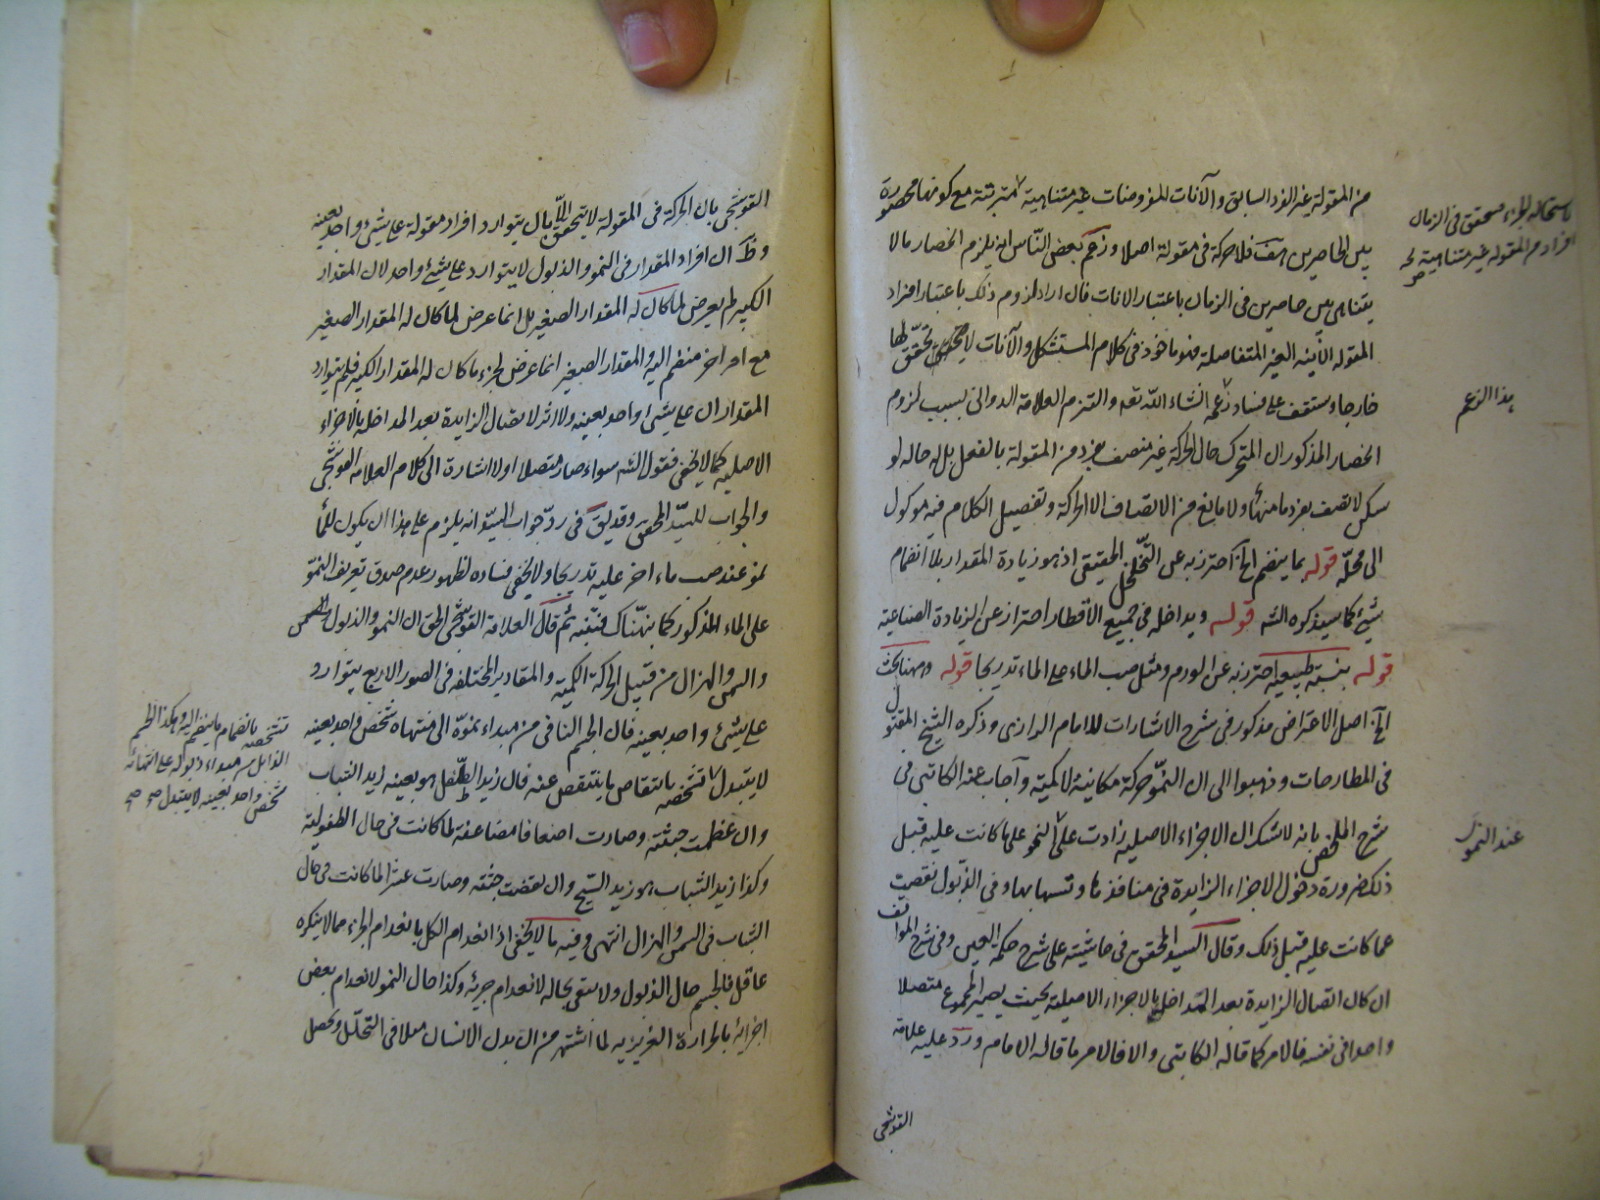 من المقولة غير الفرد السابق والآنات المفروضات غير متناهية مترتبة مع كونها محصورة
بين الحاصرين هف فلا حركة فى مقولة اصلا وزعم بعض النّاس انه يلزم انحصار مالا
يتناهى بين حاصرين فى الزمان باعتبار الانات فان اراد لزوم ذلك باعتبار افراد
المقولة الآنية الغير المتفاصلة فهو ماخوذ فى كلام المستشكل والآنات لا تحقق لها
خارجا وستقف على فساد زعمه انشاء اللّه تعه والتزم العلامة الدوانى بسبب لزوم
انحصار المذكور ان المتحرك حال الحركة غير متصف بفرد من المقولة بالفعل بل له حاله لو
سكن لاتصف بفرد ما منها ولا مانع من الاتصاف الا الحركة وتفصيل الكلام فيه موكول
الى محلّه قوله بما ينضم الخ احترز به عن التّخلخل الحقيقى اذ هو زيادة المقدار بلا انضمام
شئ كما سيذكره الشه قوله ويداخله فى جميع الأقطار احتراز عن الزيادة الصناعية
قوله بنسبة طبيعية احترز به عن الورم ومثل صب الماء على الماء تدريجا قوله وههنا بحث
الخ اصل الاعتراض مذكور فى شرح الاشارات للامام الرازى وذكره الشيخ المقتول
فى المطارحات وذهبوا الى ان النموّ حركة مكانية لا كمية وآجاب عنه الكاتبى فى
شرح الملخص بانه لاشك ان الاجزاء الاصلية زادت على النمو على ما كانت عليه قبل
ذلك ضرورة دخول الاجزاء الزايدة فى منافذها وتشبهها بها وفى الذّبول نقصت
عما كانت عليه قبل ذلك وقال السيد المحقق فى حاشيته على شرح حكمة العين وفى شرح المواقف
ان كان اتصال الزايدة بعد المداخل بالاجزاء الاصيلة بحيث يصير المجموع متصلا
واحدا فى نفسه فالامر كما قاله الكابتى والا فالامر ما قاله الامام وردّ عليه علامة
القوشجى
باستحالة الجزء متحقق فى الزمان
افراد من المقولة غير متناهية صح
هذا الزعم
عند النمو
القوشجى بان الحركة فى المقولة لا يتحقق الاّ بان يتوارد افراد مقولة على شئ واحد بعينه
وظ ان افراد المقدار فى النمو والذبول لا يتوارد على شئ واحد لان المقدار
الكبير لم يعرض لما كان له المقدار الصغير بل انما عرض لما كان له المقدار الصغير
مع امر اخر منضم اليه والمقدار الصغير انما عرض لجزء ما كان له المقدار الكبير فلم يتوارد
المقداران على شئ واحد بعينه ولا اثر لاتصال الزايدة بعد المداخلة بالأجزاء
الاصليه كما لا يخفى فقول الشه سواء صار متصلا اولا اشارة الى كلام العلامه القوشجى
والجواب للسيّد المحقق وقد يق فى ردّ جواب السيّد انه يلزم على هذا ان يكون للماء
نمو عند صب ماء اخر عليه تدريجا ولا يخفى فساده لظهور عدم صدق تعريف النموّ
على الماء المذكور كما نبهناك فتنبّه ثم قال العلامة القوشجى الحق ان النمو والذبول
والسمن والهزال من قبيل الحركة الكمية والمقادير المختلفه فى الصور الاربع يتوارد
على شئ واحد بعينه فان الجسم النامى من مبداء نموّه الى منتهاه شخص واحد بعينه
لا يتبدل تشخّصه بانتقاص ما ينتقص عنه فان زيد الطّفل هو بعينه زيد الشباب
وان عظمت جثته وصارت اضعافا مضاعفة لما كانت فى حال الطفولية
وكذا زيد الشباب هو زيد الشيخ وان نقصت جثته وصارت عشرا لما كانت فى حال
الشباب فى السمن والهزال انتهى وفيه ما لا يخفى اذ انعدام الكل بانعدام الجزء مما لا ينكره
عاقل فالجسم حال الذبول ولا يبقى بحاله لانعدام جزئه وكذا حال النمو لانعدام بعض
اجزائه بالحرارة الغريزيه لما اشتهر من ان بدن الانسان مثلا فى التحلّل ويحصل
تشخصه بانضمام ما ينضم اليه وهكذا الجسم
الذابل من مبداء ذبوله على انتهائه
شخص واحد بعينه لا يتبدل صح صح